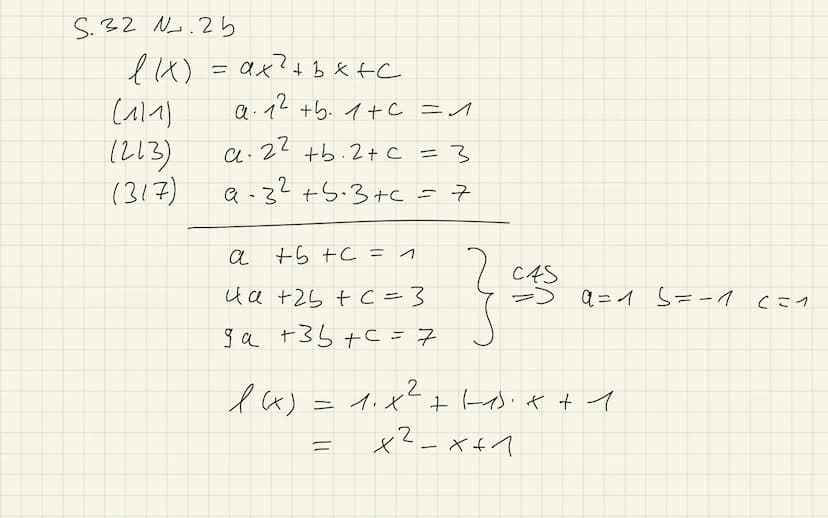 S.32 Nr. 2b
f(x) = ax²+bx+c
(1|1) a·1²+b·1+c = 1
(2|3) a·2²+b·2+c = 3
(3|7) a·3²+b·3+c = 7
a +b +c = 1
4a +2b + c = 3 } CAS => a=1 b=-1 c=1
9a +3b +c = 7
f(x) = 1·x²+(-1)·x+1
= x²-x+1